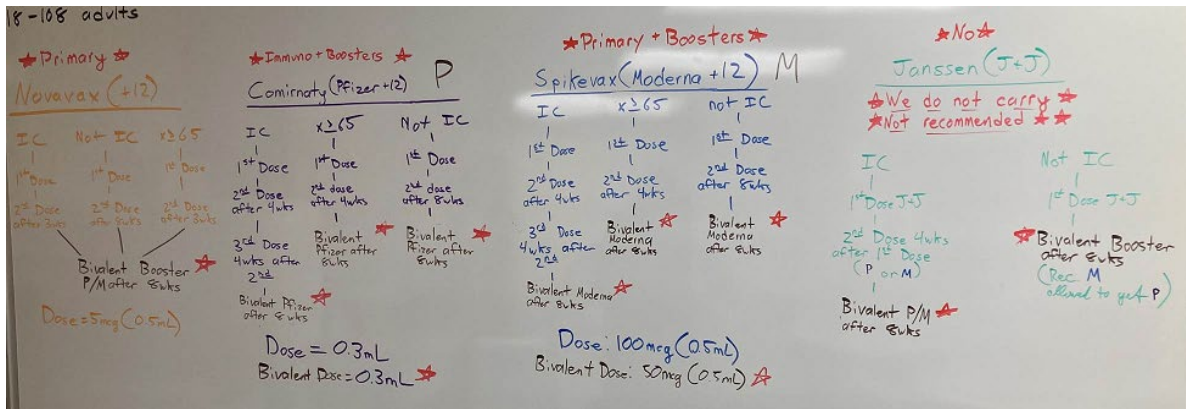 18-108 adults
☆Primary☆
Novavax (+12)
IC
1st Dose
2nd Dose
after 3wks
Not IC
1st Dose
2nd Dose
after 8wks
x≥65
1st Dose
2nd Dose
after 3wks
Bivalent Booster ☆
P/M after 8wks
Dose=5mcg (0.5mL)
★Immuno+Boosters ☆
Comirnaty (Pfizer+12) P
IC
1st Dose
2nd Dose
after 4wks
3rd Dose
4wks after
2nd
Bivalent Pfizer ☆
after 8wks
x≥65
1st Dose
2nd dose
after 4wks
Bivalent ☆
Pfizer after
8wks
Not IC
1st Dose
2nd dose
after 8wks
Bivalent ☆
Pfizer after
8wks
Dose = 0.3mL
Bivalent Dose=0.3mL ☆
★Primary + Boosters★
Spikevax (Moderna +12) M
IC
1st Dose
2nd Dose
after 4wks
3rd Dose
4wks after
2nd
Bivalent Moderna ☆
after 8wks
x≥65
1st Dose
2nd Dose
after 4wks
Bivalent ☆
Moderna
after 8wks
not IC
1st Dose
2nd Dose
after 8wks
Bivalent ☆
Moderna
after 8wks
Dose: 100mcg (0.5mL)
Bivalent Dose: 50mcg (0.5mL) ☆
★No☆
Janssen (J+J)
☆We do not carry☆
★Not recommended★★
IC
1st Dose J+J
2nd Dose 4wks
after 1st Dose
(P or M)
Bivalent P/M ☆
after 8wks
Not IC
1st Dose J+J
☆Bivalent Booster
after 8wks
(Rec M
allowed to get P)